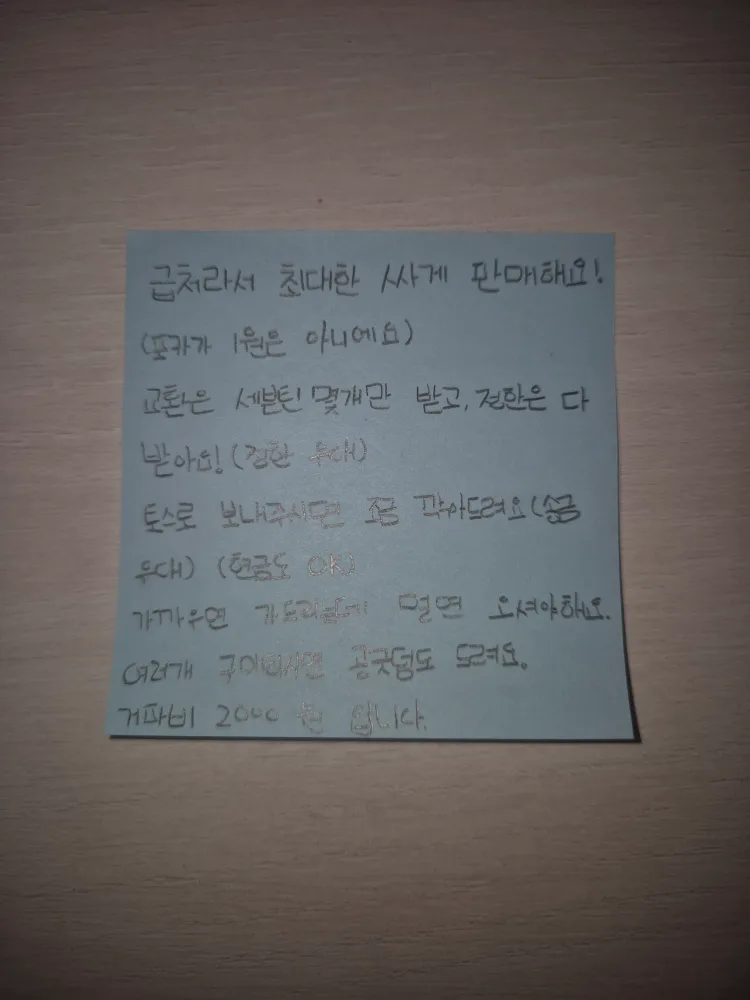 급처라서 최대한 싸게 판매해요!
(포카가 1원은 아니에요)
교환은 세븐틴 몇개만 받고, 정한은 다
받아요! (정한 우대)
토스로 보내주시면 조금 깎아드려요 (송금
우대) (현금도 OK)
가까우면 멀면 오셔야해요.
여러개 구매하시면 공굿덤도 드려요.
거파비 2000 원 입니다.